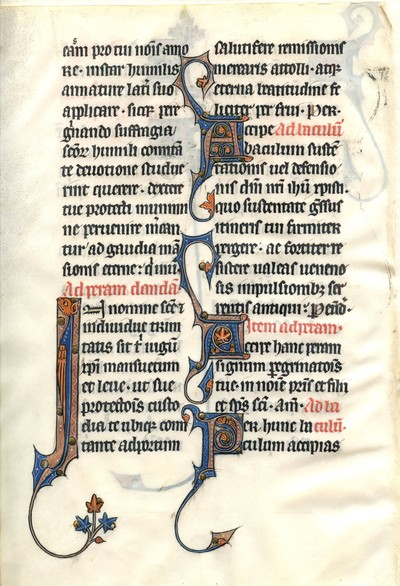 etam pro tui nois amo
re · instar humilis
armature lateri suo
applicare · sicque pere
grinando suffragia
scor humili comitan
te devotione studue
rint querere · dextere
tue protecti munimi
ne pervenire mean
tur ad gaudia man
sionis eterne · qui vivis
Ad peram dandam
In nomine sce et
individue trini
tatis sit tibi iugum
xpi mansuetum
et leve · ut sue
protectois custo
dia te ubique comi
tante ad portum
salutifere remissionis
merearis attolli · atque
eterna beatitudine fe
liciter perfrui · Per ·
Accipe Ad baculum
baculum susten
tationis vel defensio
nis dni nri ihu xpisti ·
quo sustentate gressus
retinens tui firmiter
pergere · ac fortiter re
sistere valeas veneno
sis impulsionibus ser
pentis antiqui : Per eund
Item ad peram ·
Accipe hanc peram
signum peregrinatois
tue · in noie pris et filii
et sps sci · am · Ad ba
Per hunc ba culum ·
culum accipias